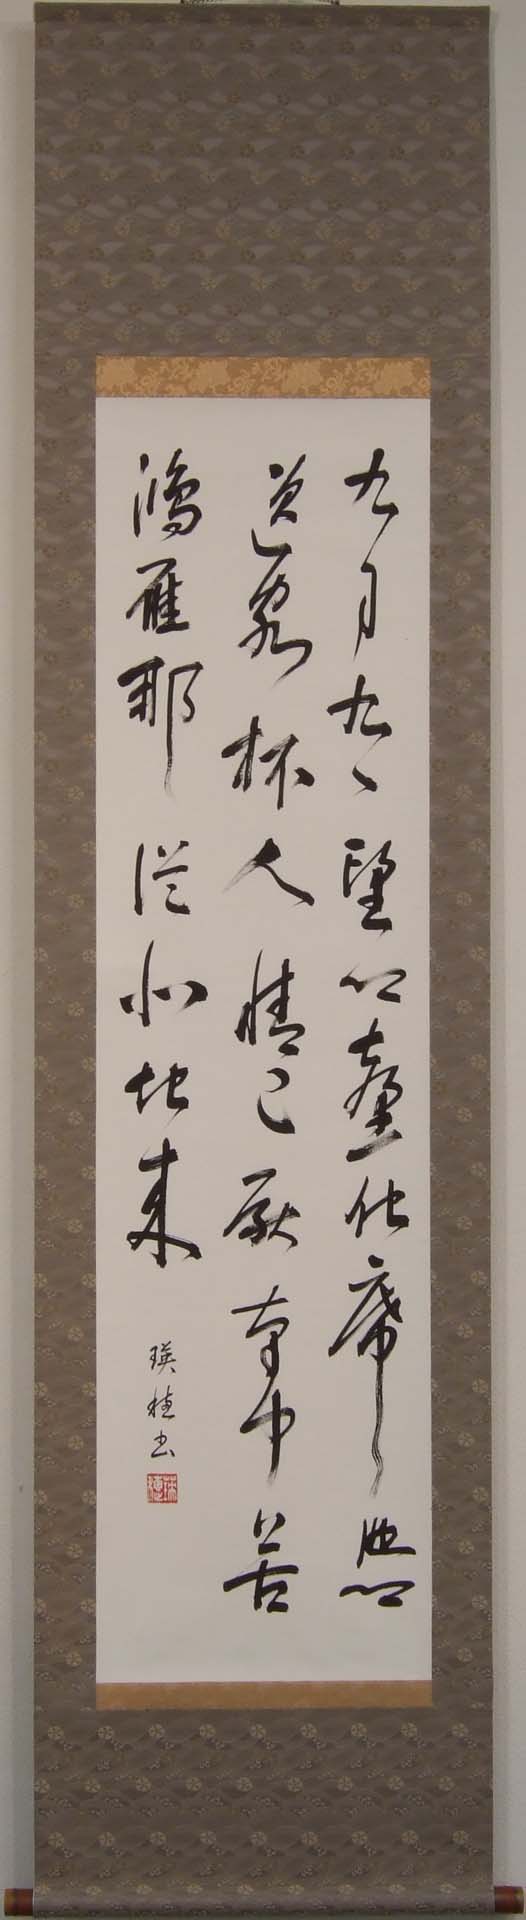 九月九日望鄉臺他席他鄉
送客杯人情已厭南中苦
鴻雁那從北地來